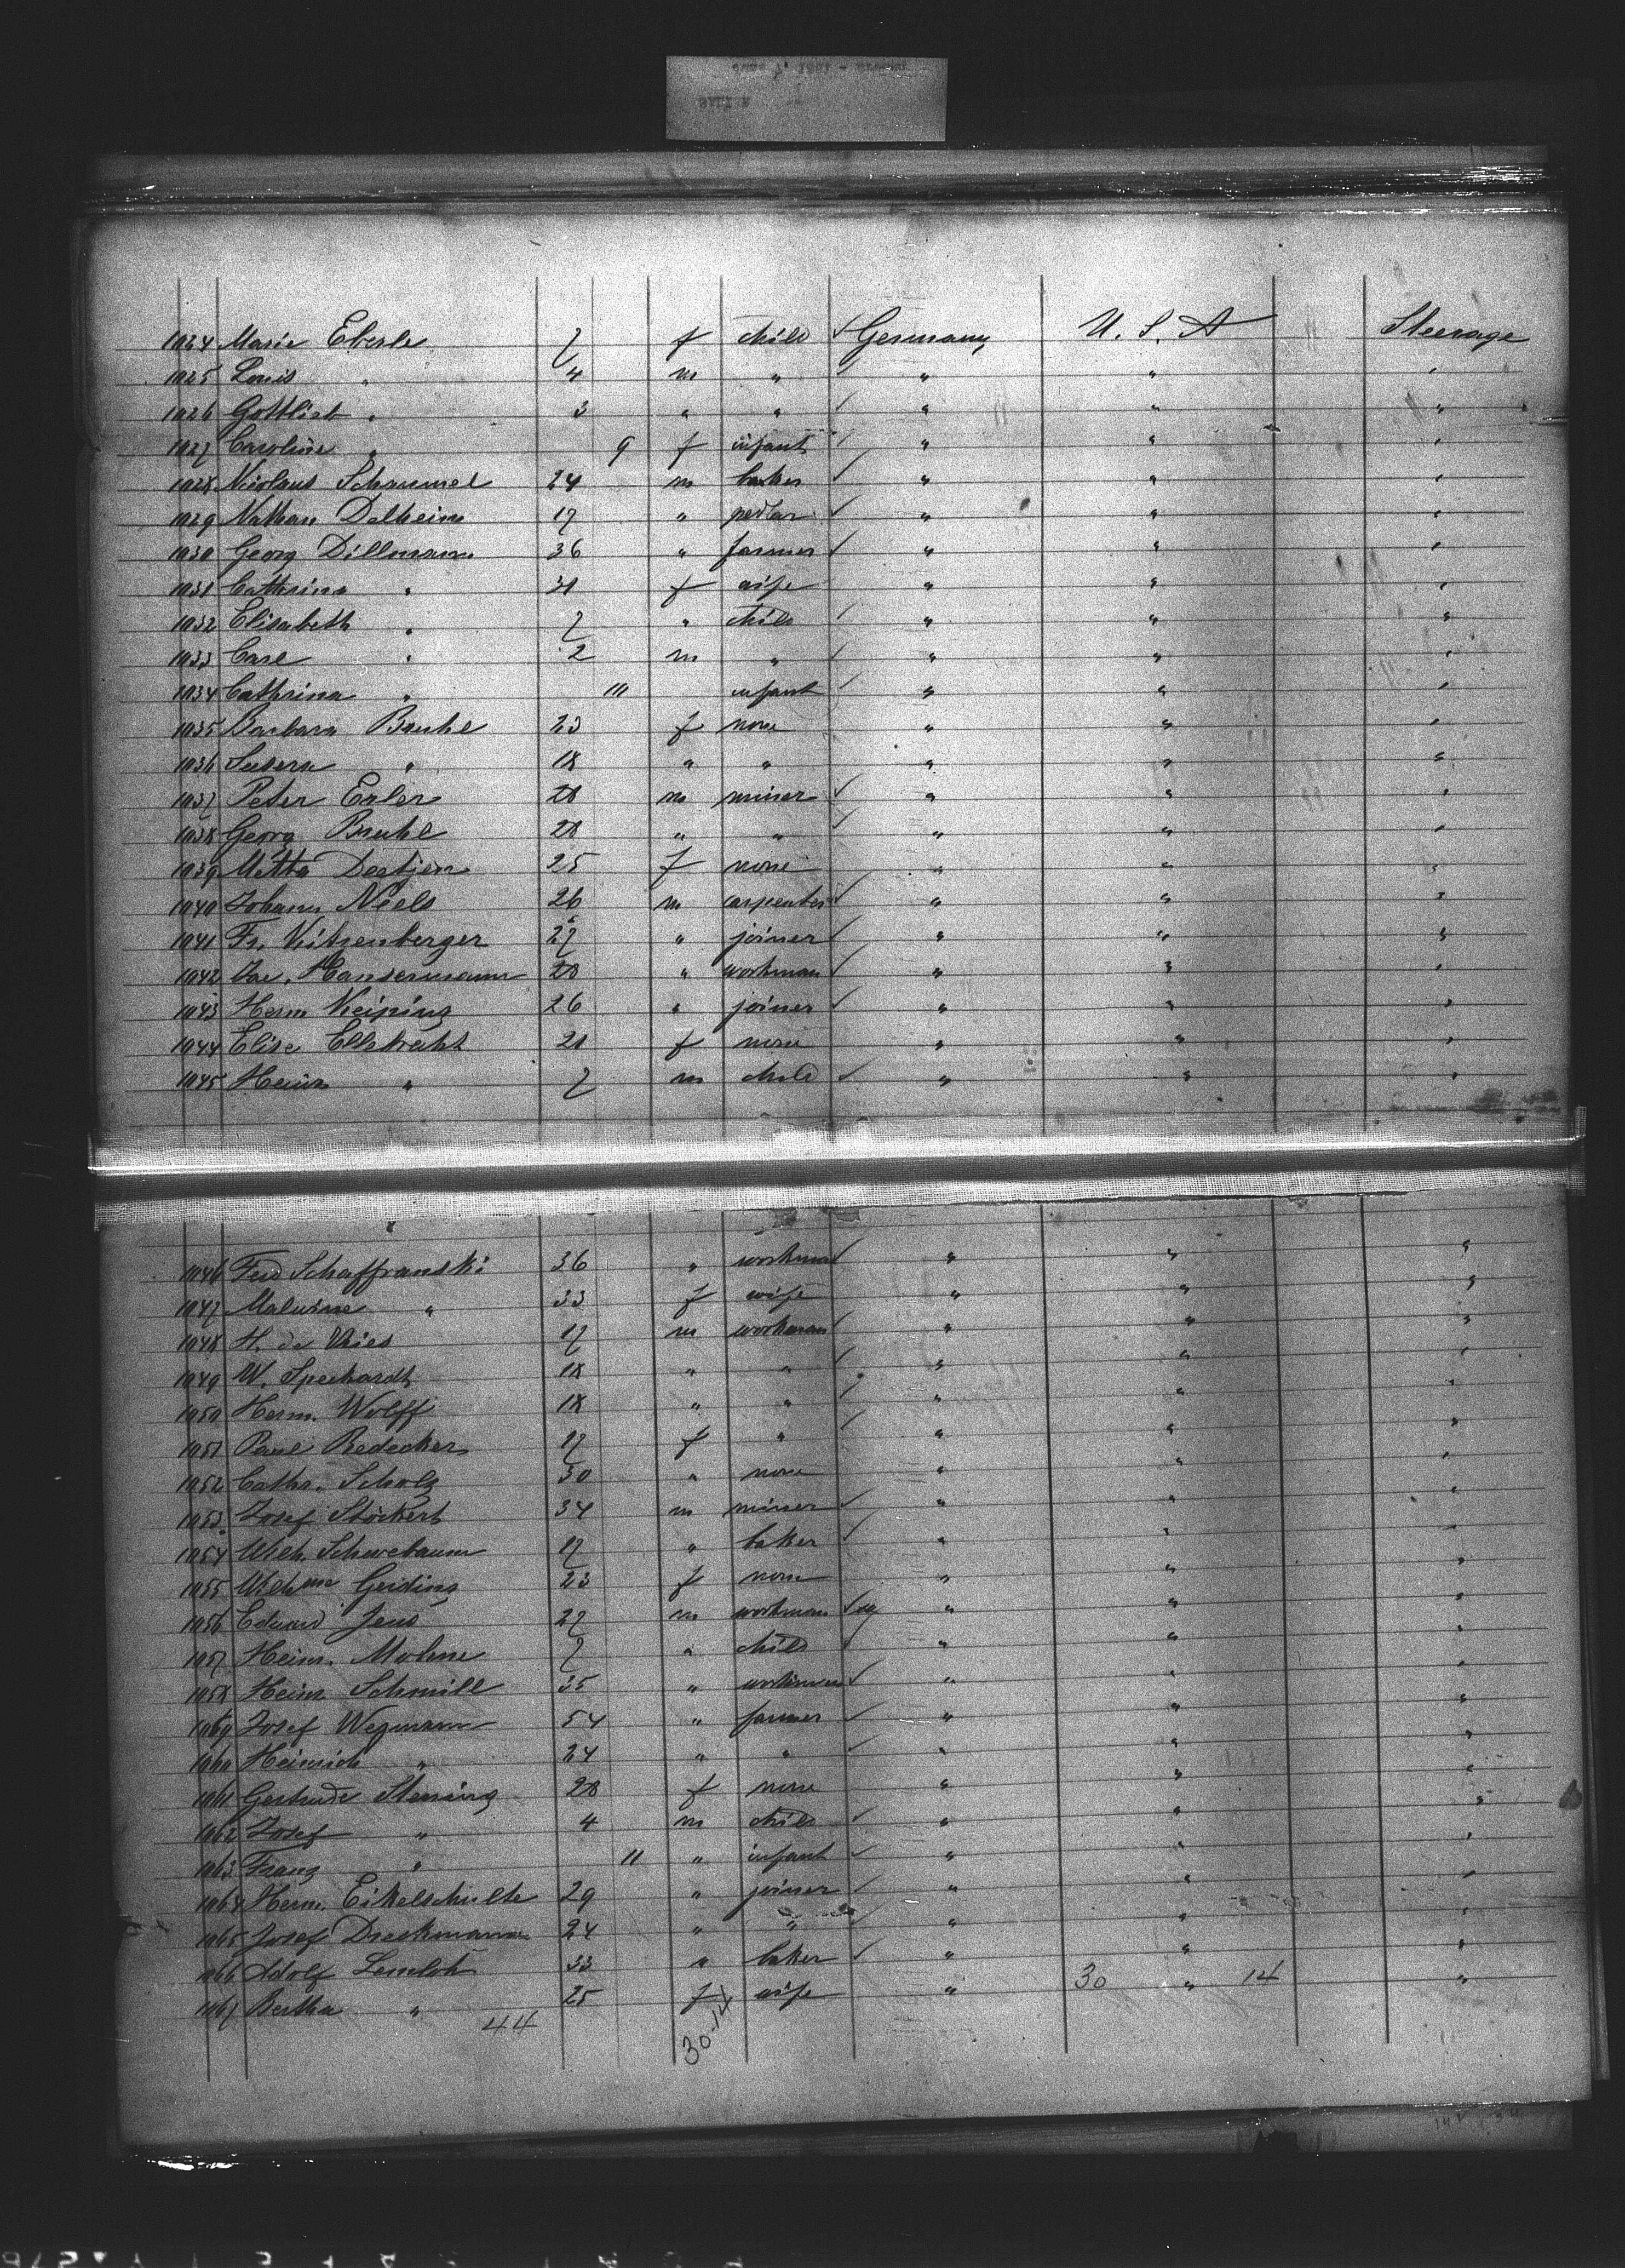 1024 Marie Eberle 7 f child ✓ Germany U. S. A Steerage
1025 Louis " 4 m " ✓ " " "
1026 Gottlieb " 3 " " ✓ " " "
1027 Caroline " 9 f infant ✓ " " "
1028 Nicolaus Schammel 24 m baker ✓ " " "
1029 Nathan Dalheim 17 " pedlar ✓ " " "
1030 Georg Dillmann 36 " farmer ✓ " " "
1031 Cathrina " 31 f wife " " "
1032 Elisabeth " 7 " child ✓ " " "
1033 Carl " 2 m " ✓ " " "
1034 Cathrina " infant ✓ " " "
1035 Barbara 23 f none " " "
1036 " 18 " " " " "
1037 Peter Exler 28 m miner ✓ " " "
1038 Georg 28 " " ✓ " " "
1039 Metta Doetjen 25 f none " " "
1040 Johann Niels 26 m carpenter ✓ " " "
1041 Fr. Kitzenberger 27 " joiner ✓ " " "
1042 Hansermann 28 " workman ✓ " " "
1043 Herm 26 " joiner ✓ " " "
1044 Elise 21 f none " " "
1045 Heinr " 7 m child ✓ " " "
1046 Ferd Schaffranski 36 " workman ✓ " " "
1047 Malwine " 33 f wife " " "
1048 H. de Vries 17 m workman ✓ " " "
1049 W. Speckardt 18 " " ✓ " " "
1050 Herm. Wolff 18 " " ✓ " " "
1051 Paul Redecker 17 f " ✓ " " "
1052 Cathr. Scholz 30 " none " " "
1053 Josef Stöckert 34 m miner ✓ " " "
1054 Wilh. Schwebaum 17 " baker ✓ " " "
1055 Geiding 23 f none " " "
1056 Eduard Jens 27 m workman ✓ " " "
1057 Heinr. 7 " child ✓ " " "
1058 Heinr Schmill 35 " workman ✓ " " "
1059 Josef Wegmann 54 " farmer ✓ " " "
1060 Heinrich " 24 " " ✓ " " "
1061 Gertrude Stening 28 f none " " "
1062 Josef " 4 m child ✓ " " "
1063 Franz " 11 " infant ✓ " " "
1064 Herm. Eikelschulte 29 " joiner ✓ " " "
1065 Josef 24 " " ✓ " " "
1066 Adolf Lemloh 33 " baker ✓ " " "
1067 Bertha " 25 f wife " 30 " 14 "
44 30-14